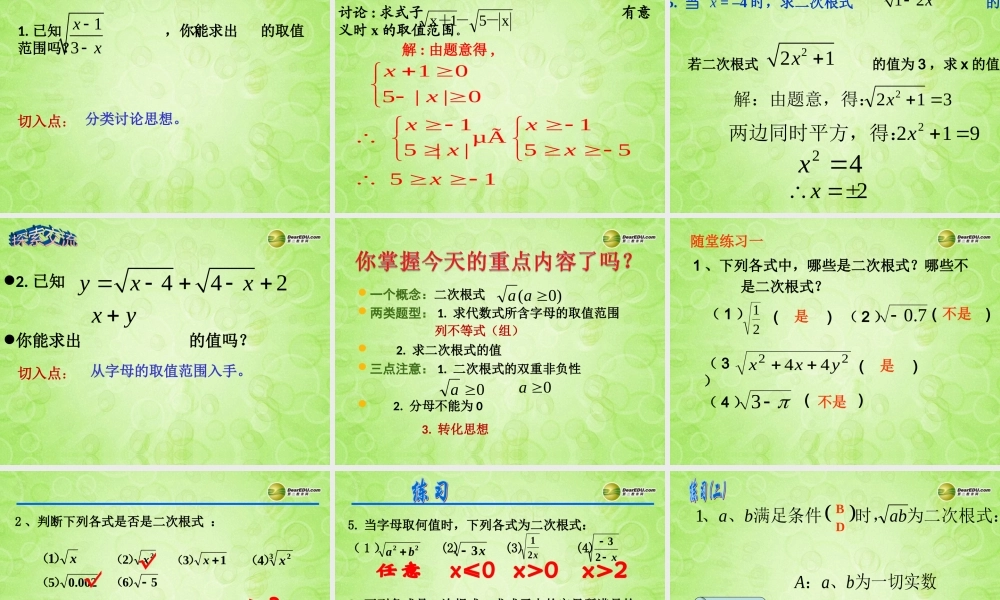 1. 已知 √(x−1)/(3−x) ，你能求出 x 的取值
范围吗？
切入点： 分类讨论思想。
讨论 : 求式子 √x+1 − √5−|x| 有意
义时 x 的取值范围。
解 : 由题意得 ,
x + 1 0
5− | x |≥0
∴ x ≥ − 1 µÃ x ≥ − 1
5 ≥| x | 5 ≥ x ≥ − 5
∴ 5 ≥ x ≥ − 1
当 x = −4 时，求二次根式 1 2x 的
若二次根式 2x²+1 的值为 3 , 求 x 的值
解：由题意，得：2x² 1 =3
两边同时平方，得：2x² 1 =9
x² =4
∴x =±2
探索交流
DearEDU.com
2. 已知 y = √x−4 + √4−x + 2
x + y
你能求出 的值吗？
切入点： 从字母的取值范围入手。
DearEDU.com
你掌握今天的重点内容了吗？
一个概念：二次根式 √a (a ≥ 0)
两类题型： 1. 求代数式所含字母的取值范围
列不等式（组）
2. 求二次根式的值
三点注意： 1. 二次根式的双重非负性
√a ≥0 a ≥0
2. 分母不能为 0
3. 转化思想
DearEDU.com
随堂练习一
1 、下列各式中，哪些是二次根式？哪些不
是二次根式？
（ 1 ）√1/2 ( 是 ) （ 2 ）√−0.7 ( 不是 )
（ 3 ）√x²+4x+4y² ( 是 )
（ 4 ）√3−π ( 不是 )
DearEDU.com
2 、判断下列各式是否是二次根式 ：
(1) √x (2) √x² (3) √x+1 (4) ∛x²
(5) √0.002 (6) √−5
DearEDU.com
练习
5. 当字母取何值时，下列各式为二次根式：
（ 1 ）√a²+b² (2) √−3x (3) √1/2x (4) √−3/2−x
任意 x≤0 x>0 x>2
DearEDU.com
练习(二)
1、a、b满足条件( B D )时,√ab为二次根式：
A：a、b为一切实数
DearEDU.com